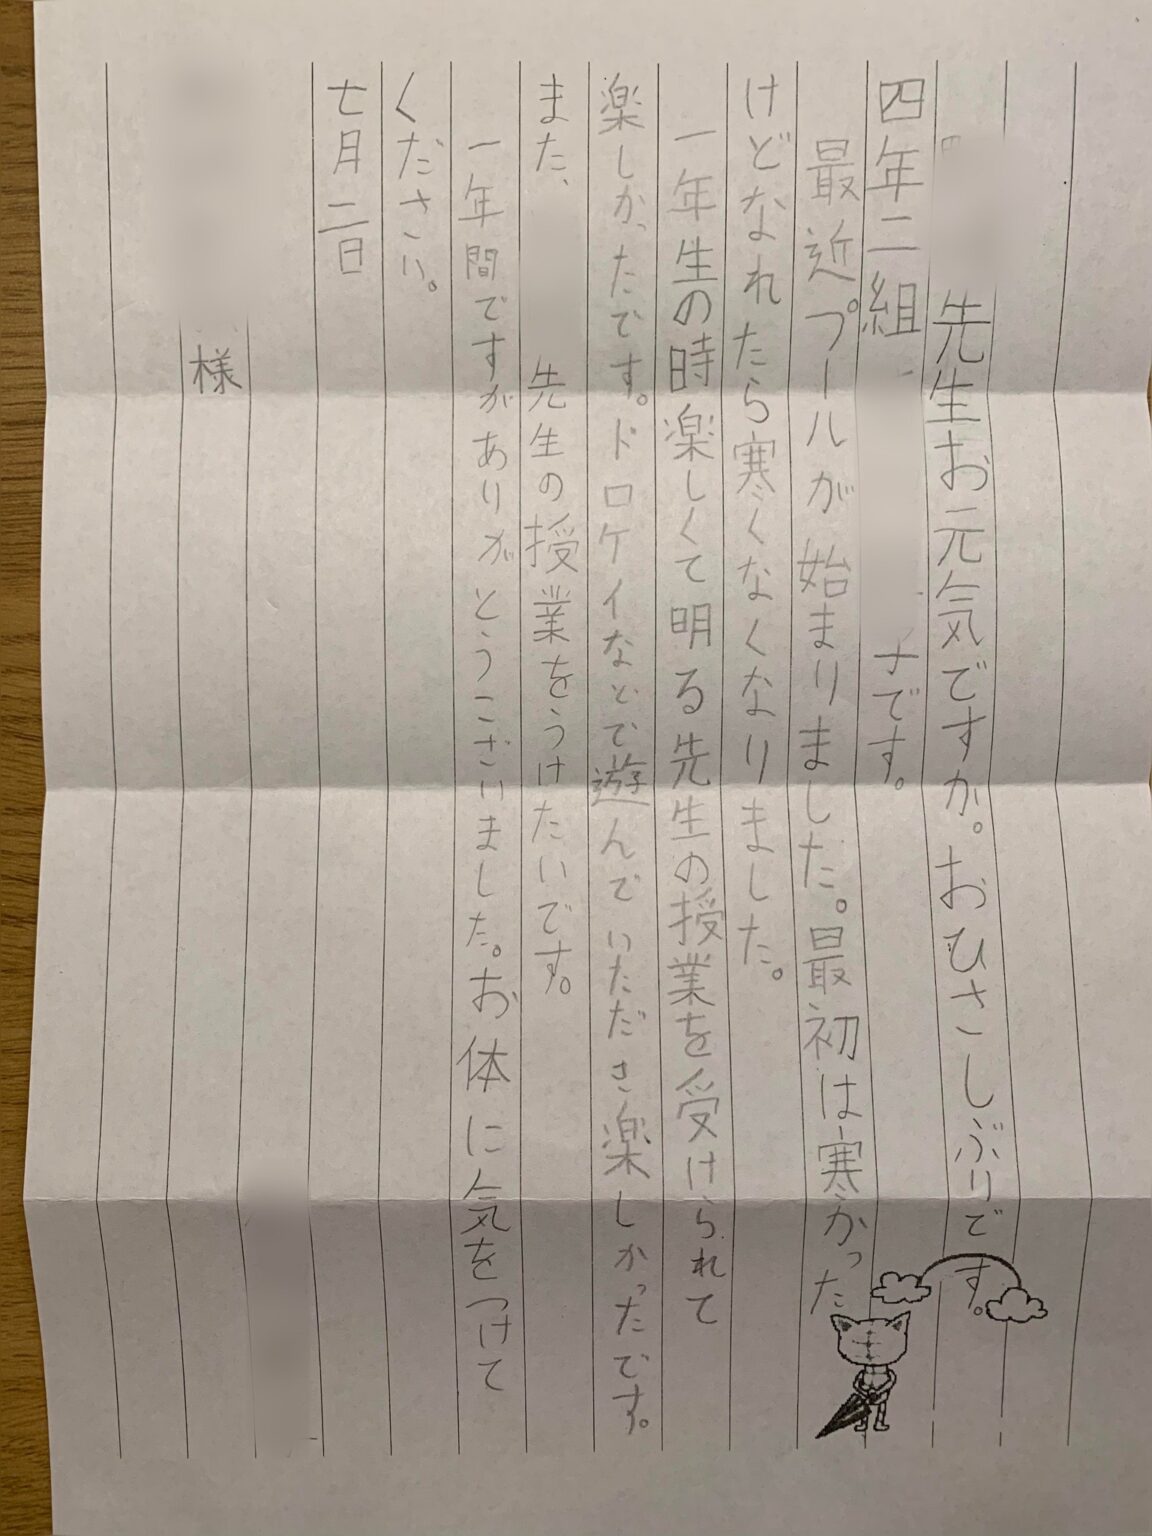 先生お元気ですか。おひさしぶりです。
四年二組 子です。
最近プールが始まりました。最初は寒かった
けどなれたら寒くなくなりました。
一年生の時楽しくて明る先生の授業を受けられて
楽しかったです。ドロケイなどで遊んでいただき楽しかったです。
また、 先生の授業をうけたいです。
一年間ですがありがとうございました。お体に気をつけて
ください。
七月二日
様